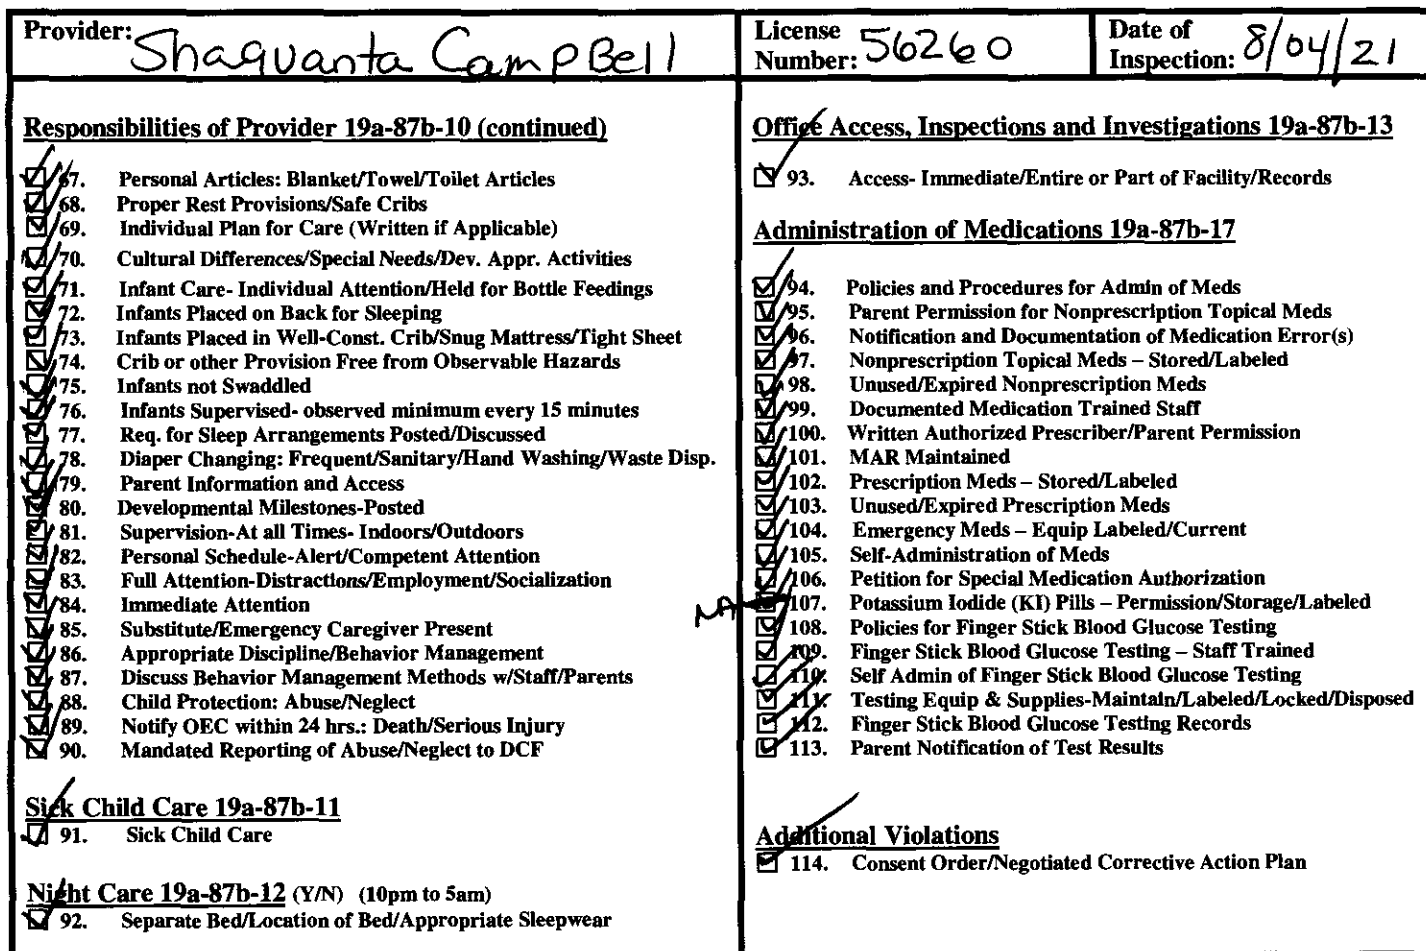 Provider: Shaquanta CampBell
License Number: 56260
Date of Inspection: 8/04/21
Responsibilities of Provider 19a-87b-10 (continued)
67. Personal Articles: Blanket/Towel/Toilet Articles
68. Proper Rest Provisions/Safe Cribs
69. Individual Plan for Care (Written if Applicable)
70. Cultural Differences/Special Needs/Dev. Appr. Activities
71. Infant Care- Individual Attention/Held for Bottle Feedings
72. Infants Placed on Back for Sleeping
73. Infants Placed in Well-Const. Crib/Snug Mattress/Tight Sheet
74. Crib or other Provision Free from Observable Hazards
75. Infants not Swaddled
76. Infants Supervised- observed minimum every 15 minutes
77. Req. for Sleep Arrangements Posted/Discussed
78. Diaper Changing: Frequent/Sanitary/Hand Washing/Waste Disp.
79. Parent Information and Access
80. Developmental Milestones-Posted
81. Supervision-At all Times- Indoors/Outdoors
82. Personal Schedule-Alert/Competent Attention
83. Full Attention-Distractions/Employment/Socialization
84. Immediate Attention
85. Substitute/Emergency Caregiver Present
86. Appropriate Discipline/Behavior Management
87. Discuss Behavior Management Methods w/Staff/Parents
88. Child Protection: Abuse/Neglect
89. Notify OEC within 24 hrs.: Death/Serious Injury
90. Mandated Reporting of Abuse/Neglect to DCF
Sick Child Care 19a-87b-11
91. Sick Child Care
Night Care 19a-87b-12 (Y/N) (10pm to 5am)
92. Separate Bed/Location of Bed/Appropriate Sleepwear
Office Access, Inspections and Investigations 19a-87b-13
93. Access- Immediate/Entire or Part of Facility/Records
Administration of Medications 19a-87b-17
94. Policies and Procedures for Admin of Meds
95. Parent Permission for Nonprescription Topical Meds
96. Notification and Documentation of Medication Error(s)
97. Nonprescription Topical Meds – Stored/Labeled
98. Unused/Expired Nonprescription Meds
99. Documented Medication Trained Staff
100. Written Authorized Prescriber/Parent Permission
101. MAR Maintained
102. Prescription Meds – Stored/Labeled
103. Unused/Expired Prescription Meds
104. Emergency Meds – Equip Labeled/Current
105. Self-Administration of Meds
106. Petition for Special Medication Authorization
NA 107. Potassium Iodide (KI) Pills – Permission/Storage/Labeled
108. Policies for Finger Stick Blood Glucose Testing
109. Finger Stick Blood Glucose Testing – Staff Trained
110. Self Admin of Finger Stick Blood Glucose Testing
111. Testing Equip & Supplies-Maintain/Labeled/Locked/Disposed
112. Finger Stick Blood Glucose Testing Records
113. Parent Notification of Test Results
Additional Violations
114. Consent Order/Negotiated Corrective Action Plan